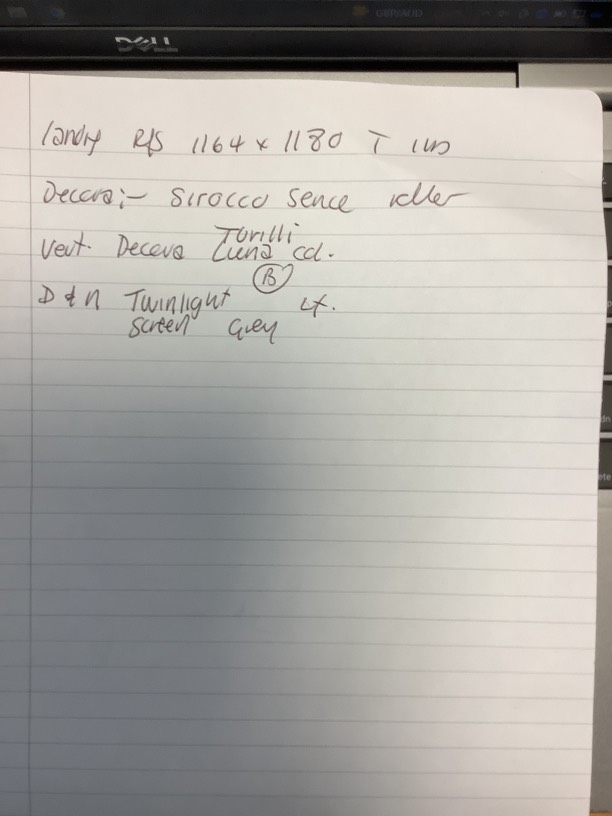 DELL
landry R/S 1164 x 1180 T
Decora:- Sirocco Sence roller
Vert. Decora Torilli
Luna col.
B
D & N Twinlight
Screen Grey